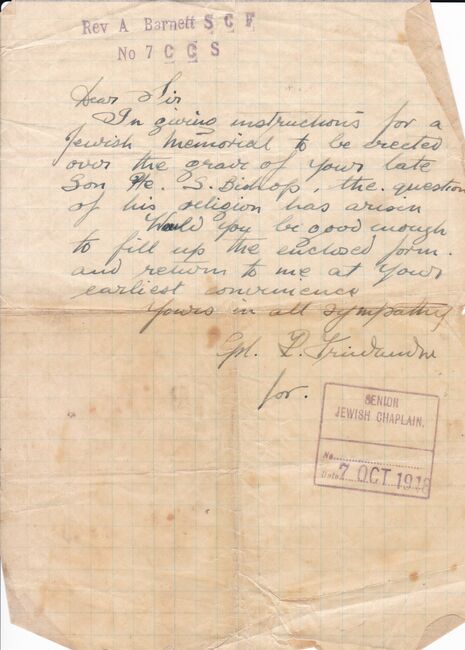 Rev A Barnett S C F
No 7 C C S
Dear Sir
In giving instructions for a
Jewish Memorial to be erected
over the grave of your late
Son Pte. S. Bishop, the question
of his religion has arisin
Would you be good enough
to fill up the enclosed form.
and return to me at your
earliest convenience
Yours in all sympathy
Cpl.
for.
SENIOR
JEWISH CHAPLAIN.
No.
Date 7 OCT 1918